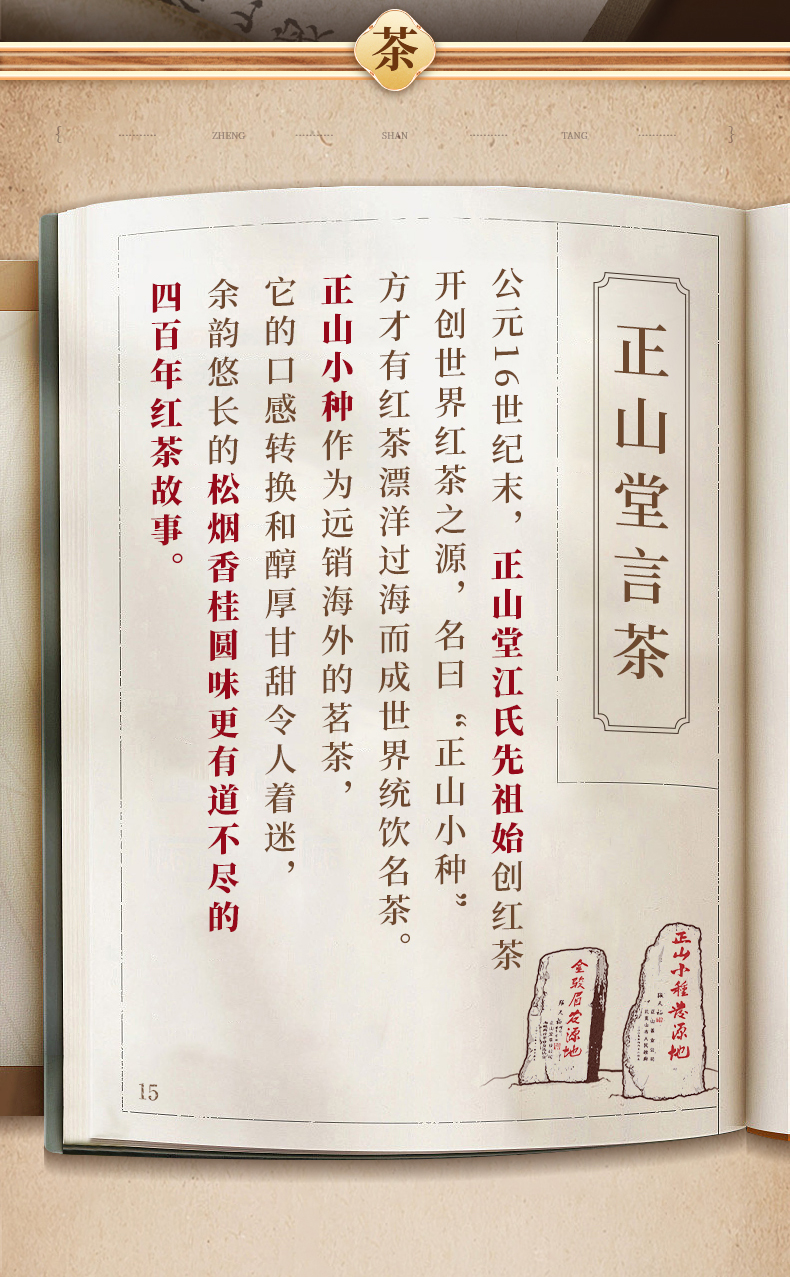 茶
ZHENG SHAN TANG
正山堂言茶
公元16世纪末，正山堂江氏先祖始创红茶
开创世界红茶之源，名曰“正山小种”
方才有红茶漂洋过海而成世界统饮名茶。
正山小种作为远销海外的茗茶，
它的口感转换和醇厚甘甜令人着迷，
余韵悠长的松烟香桂圆味更有道不尽的
四百年红茶故事。
正山小種发源地
金骏眉发源地
15